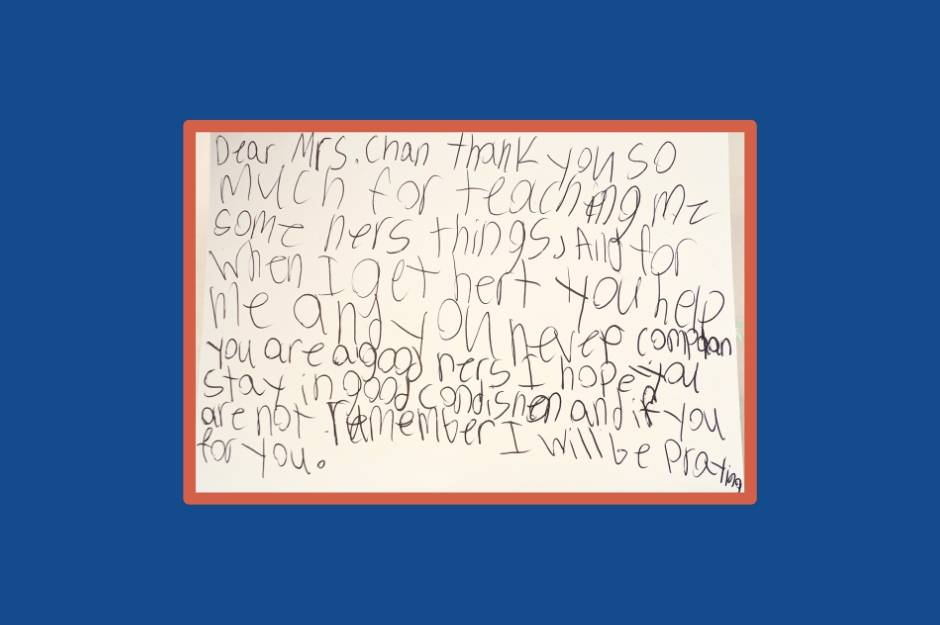 Dear Mrs. Chan thank you so
much for teaching me
some ners things, And for
when I get hert you help
me and you never compdan
you are a good ners I hope you
stay in good condishen and if you
are not remember I will be praying
for you.